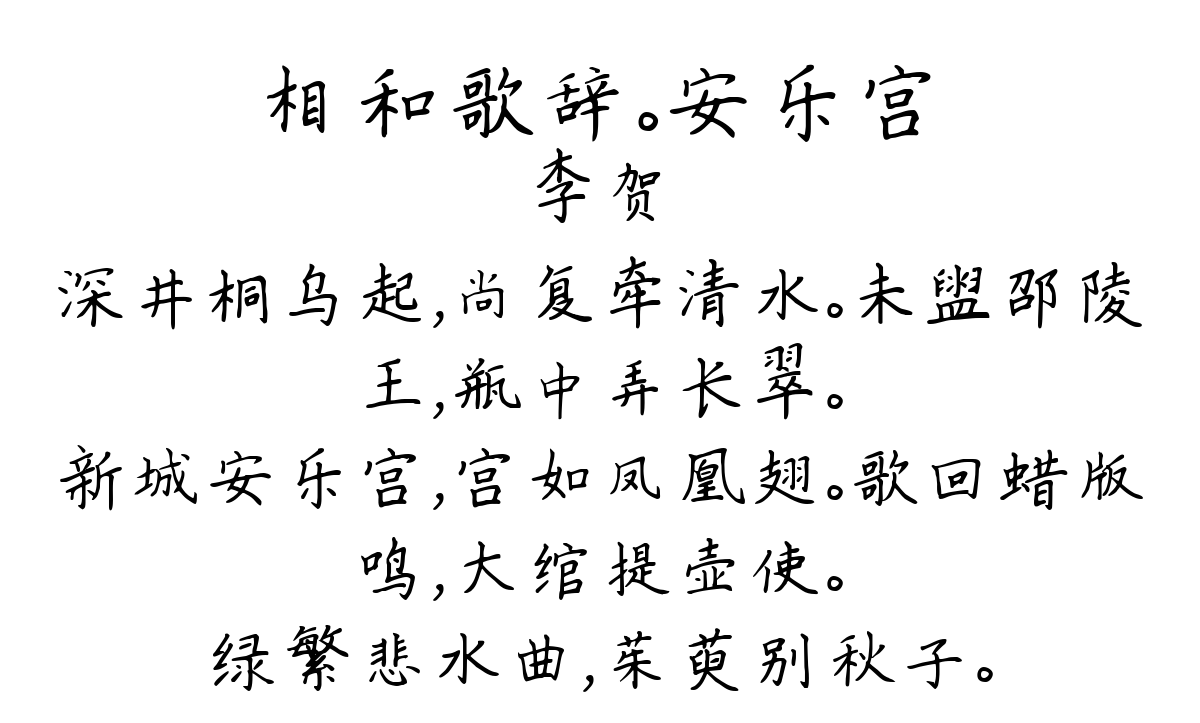 相和歌辞。安乐宫
李贺
深井桐乌起,尚复牵清水。未盥邵陵
王,瓶中弄长翠。
新城安乐宫,宫如凤凰翅。歌回蜡版
鸣,大绾提壶使。
绿繁悲水曲,茱萸别秋子。